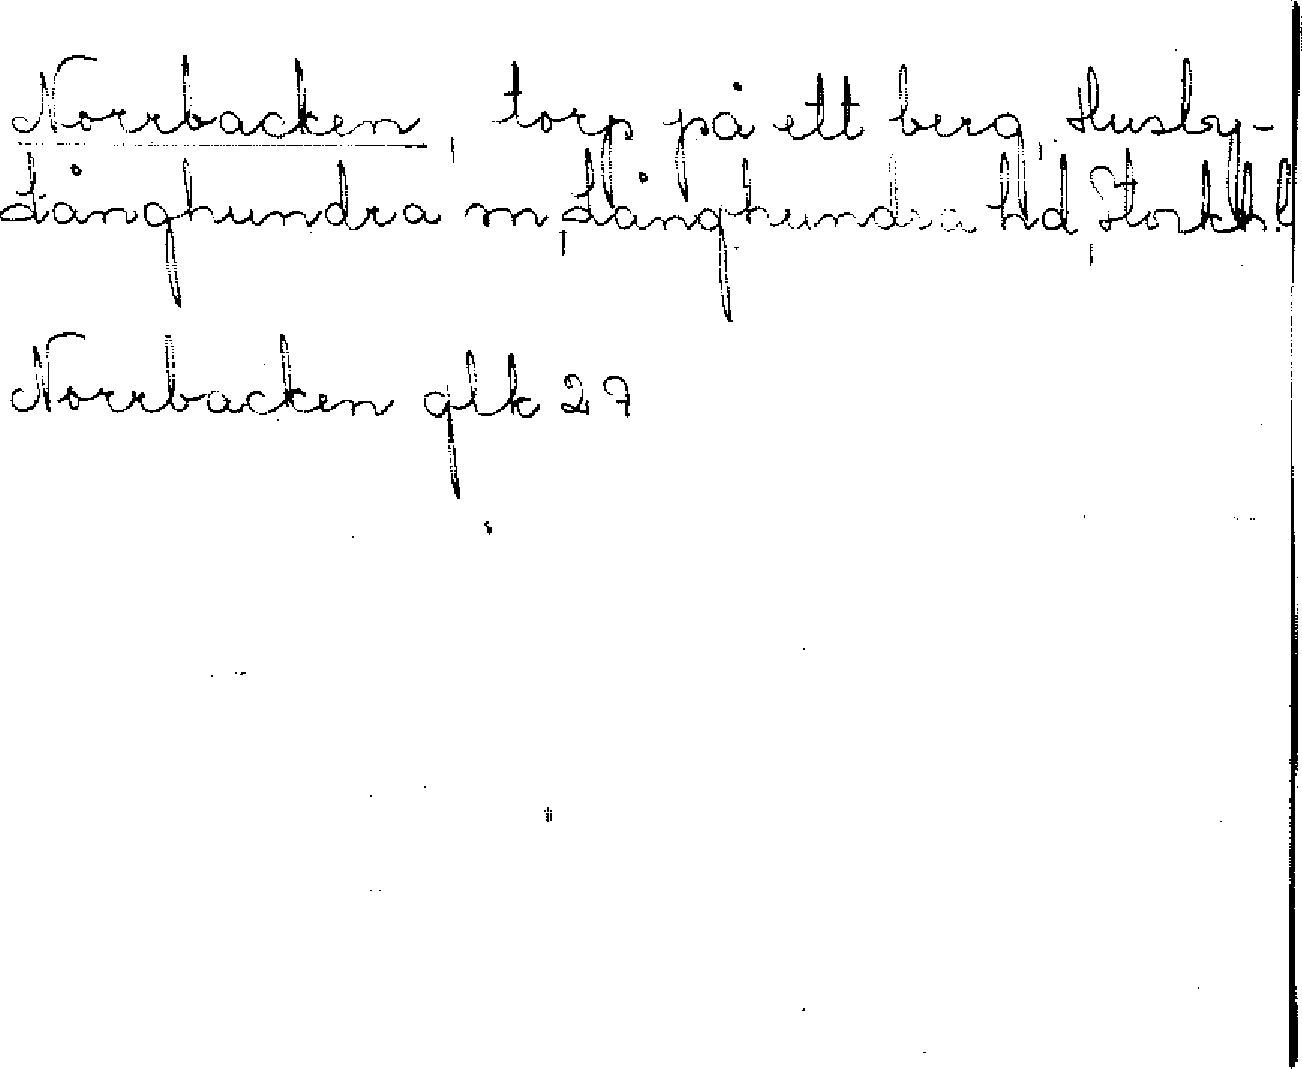 Norrbacken, torp på ett berg, Husby-
Långhundra sn, Långhundra hd, Stockh.l
Norrbacken glk 27